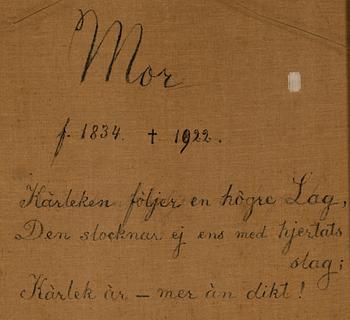 Mor
f. 1834. † 1922.
Kärleken följer en högre Lag,
Den slocknar ej ens med hjertats
slag;
Kärlek är – mer än dikt!